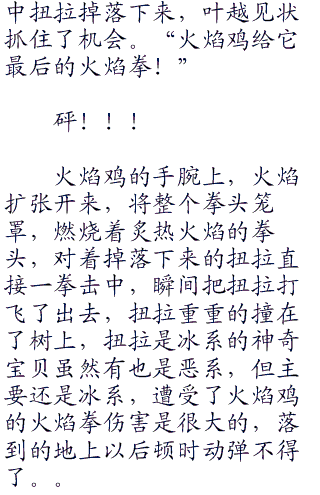 中扭拉掉落下来，叶越见状
抓住了机会。“火焰鸡给它
最后的火焰拳！”
砰！！！
火焰鸡的手腕上，火焰
扩张开来，将整个拳头笼
罩，燃烧着炙热火焰的拳
头，对着掉落下来的扭拉直
接一拳击中，瞬间把扭拉打
飞了出去，扭拉重重的撞在
了树上，扭拉是冰系的神奇
宝贝虽然有也是恶系，但主
要还是冰系，遭受了火焰鸡
的火焰拳伤害是很大的，落
到的地上以后顿时动弹不得
了。。